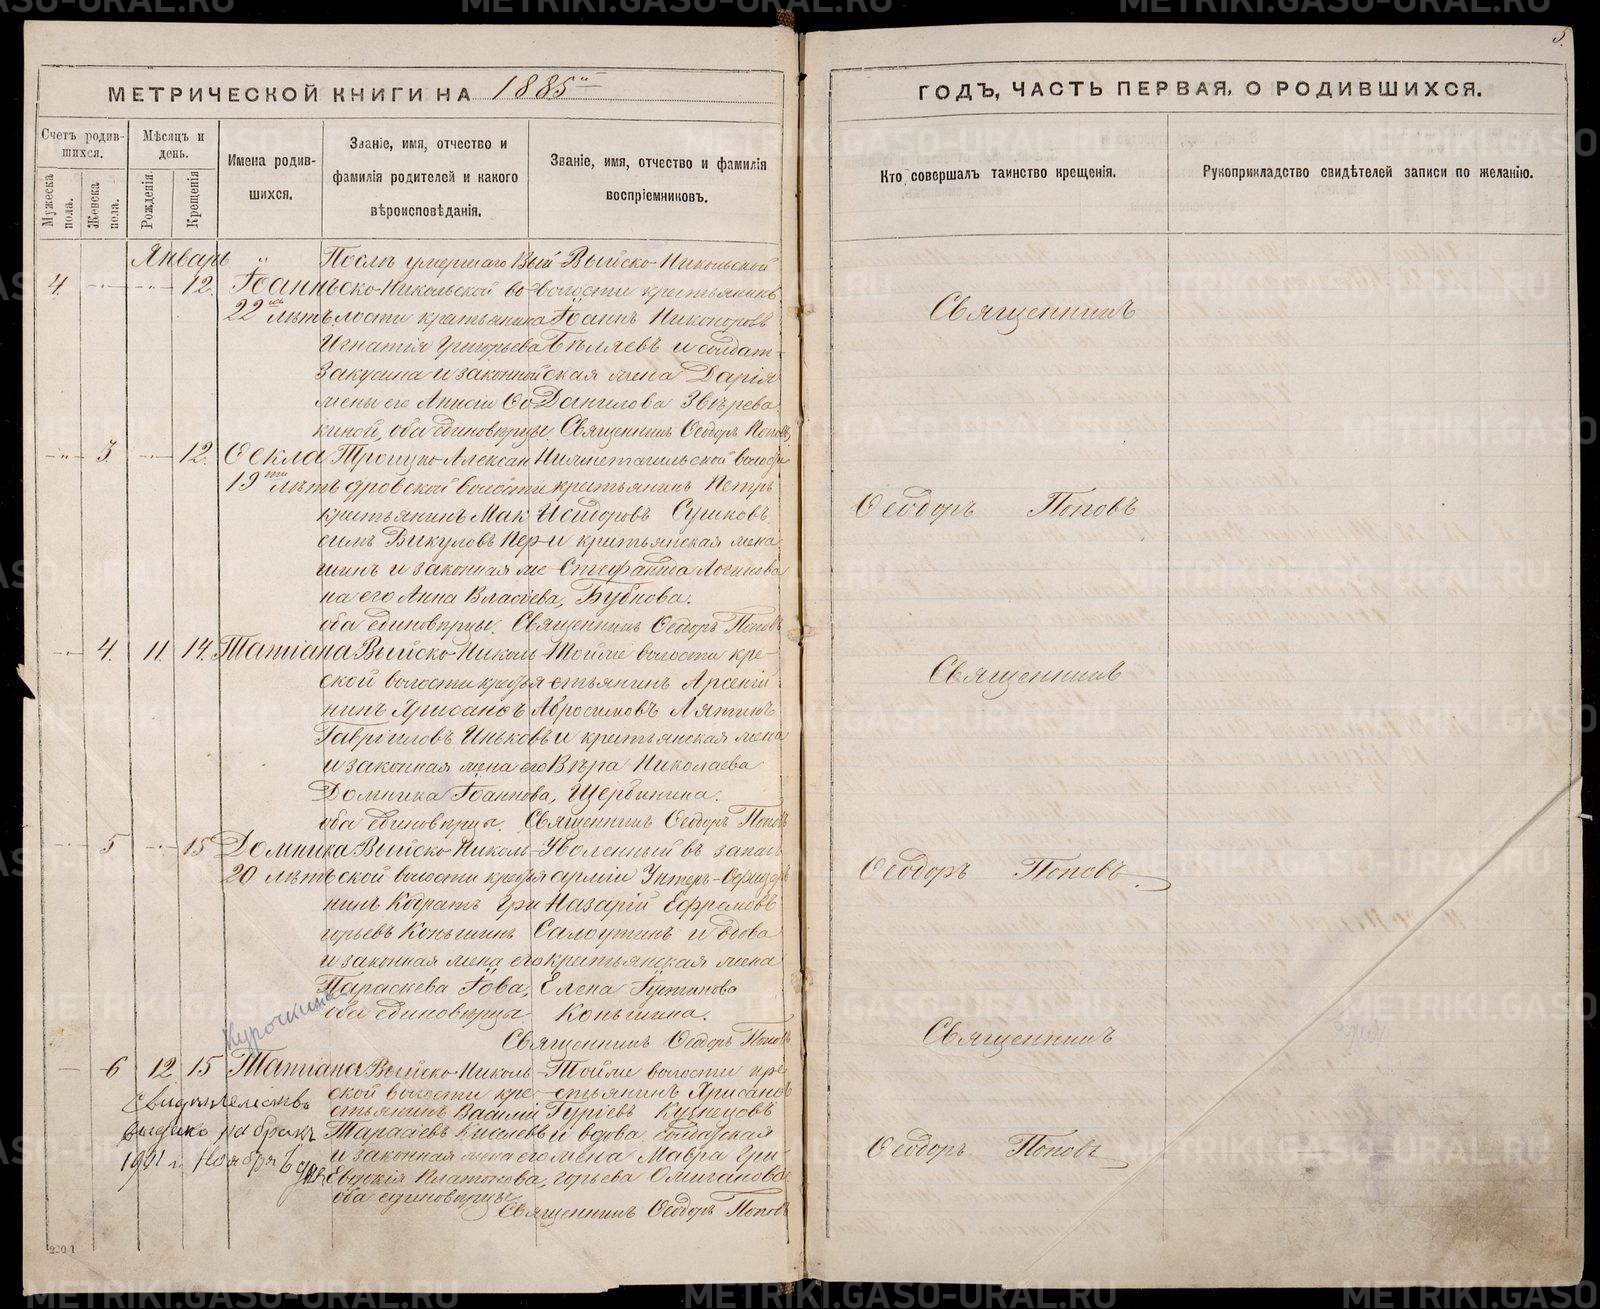 МЕТРИЧЕСКОЙ КНИГИ НА 1885й
ГОДЪ, ЧАСТЬ ПЕРВАЯ, О РОДИВШИХСЯ.
5.
Счетъ родив-
шихся.
Мужеска пола.
Женска пола.
Мѣсяцъ и
день.
Рожденія.
Крещенія
Имена родив-
шихся.
Званіе, имя, отчество и
фамилія родителей и какого
вѣроисповѣданія.
Званіе, имя, отчество и фамилія
воспріемниковъ.
Кто совершалъ таинство крещенія.
Рукоприкладство свидѣтелей записи по желанію.
Январь
4. 12. Іоаннъ
22 лѣтъ
Послѣ умершаго Вый
ско-Никольской во-
лости крестьянина
Игнатія Григорьева
Закусина и законной
жены его Анисіи
оба единовѣрцы.
Выйско-Никольской
волости крестьянинъ
Іоаннъ Никоноровъ
Бѣляевъ и солдат-
ская жена Дарія
Данилова Звѣрева.
Священникъ Ѳеодоръ Поповъ
3. 12. Ѳекла
19ти лѣтъ
Троицко-Алексан
дровской волости
крестьянинъ Мак
симъ Викуловъ Пер
шинъ и законная же
на его Анна Власіева,
оба единовѣрцы.
Нижнетагильской волости
крестьянинъ Петръ
Исидоровъ Сушковъ
и крестьянская жена
Стефанида Логинова
Бубнова.
Священникъ Ѳеодоръ Поповъ
4. 11. 14. Татіана
Выйско-Николь-
ской волости кресть
нинъ Хрисанѳъ
Гавріиловъ Иньковъ
и законная жена его
Домника Іоаннова,
оба единовѣрцы.
Тойже волости кре-
стьянинъ Арсеній
Авросимовъ Лятинъ
и крестьянская жена
Вѣра Николаева
Щербинина.
Священникъ Ѳеодоръ Поповъ
5 15 Домника
20 лѣтъ
Выйско-Николь-
ской волости крестья
нинъ Кодратъ Гри
горьевъ Коньшинъ
и законная жена его
Параскева Іова,
оба единовѣрцы
Уволенный въ запасъ
арміи Унтеръ-Офицеръ
Назарій Ефремовъ
Салоутинъ и вдова
крестьянская жена
Елена
Коньшина.
Священникъ Ѳеодоръ Поповъ
Курочкина
6 12 15 Татіана
Выйско-Николь-
ской волости кре-
стьянинъ Василій
Тарасіевъ Киселевъ
и законная жена его
Евдокія Платонова,
оба единовѣрцы
Тойже волости кре
стьянинъ Хрисанѳъ
Гуріевъ Кузнецовъ
и вдова солдатская
жена Мавра Гри-
горьева
Священникъ Ѳеодоръ Поповъ
Свидѣтельство
выдано на бракъ
1901 г. Ноября 6 дня
Священникъ
Ѳеодоръ Поповъ
Священникъ
Ѳеодоръ Поповъ.
Священникъ
Ѳеодоръ Поповъ
METRIKI.GASO-URAL.RU